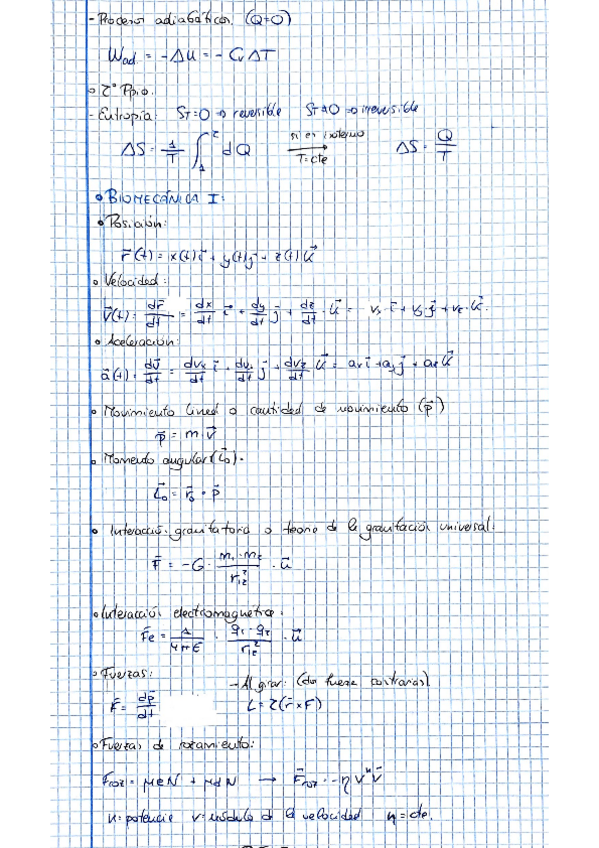 - Procesos adiabáticos (Q=0)
Wad. = -ΔU = -Cv ΔT
• 2º Ppio.
- Entropía: ST=0 → reversible ST≠0 → irreversible
ΔS = 1/T ∫₁² dQ si es isotermo T=cte → ΔS = Q/T
• BIOMECÁNICA I:
• Posición:
r⃗(t) = x(t)i⃗ + y(t)j⃗ + z(t)k⃗
• Velocidad:
v⃗(t) = dr⃗/dt = dx/dt · i⃗ + dy/dt j⃗ + dz/dt · k⃗ = vx i⃗ + vy j⃗ + vz · k⃗
• Aceleración:
a⃗(t) = dv⃗/dt = dvx/dt i⃗ + dvy/dt j⃗ + dvz/dt k⃗ = ax i⃗ + ay j⃗ + az k⃗
• Movimiento lineal o cantidad de movimiento (p⃗)
p⃗ = m · v⃗
• Momento angular (L⃗o).
L⃗o = r⃗o × p⃗
• Interacción gravitatoria o teoria de la gravitación universal:
F⃗ = -G · m1·m2/r12² · u⃗
• Interacción electromagnética:
F⃗e = 1/4πε · q1·q2/r12² · u⃗
• Fuerzas: - Al girar: (dos fuerzas contrarias)
F⃗ = dp⃗/dt L = 2(r⃗×F)
• Fuerzas de rozamiento:
Froz = μeN + μdN → F⃗roz = -η vⁿ v⃗
n = potencia v = módulo de la velocidad η = cte.